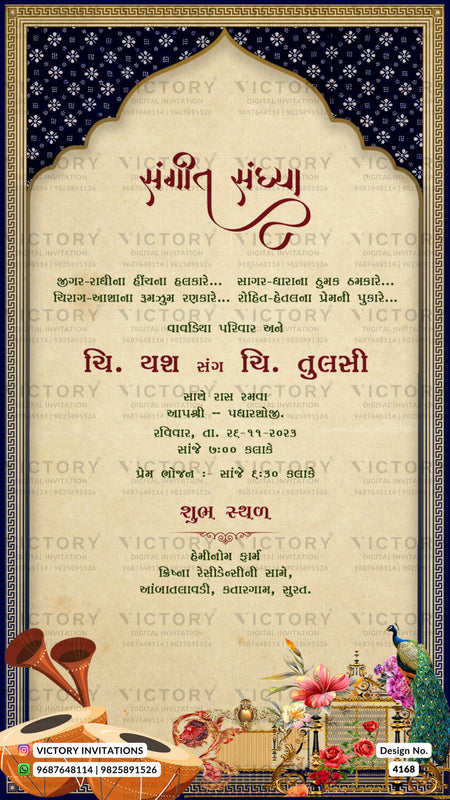 સંગીત સંધ્યા
જીગર-રાધીના હીંચના હલકારે... સાગર-ધારાના ઠુમક ઠમકારે...
ચિરાગ-આશાના રૂમઝુમ રણકારે... રોહિત-હેતલના પ્રેમની પુકારે...
વાવડિયા પરિવાર અને
ચિ. યશ સંગ ચિ. તુલસી
સાથે રાસ રમવા
આપશ્રી -- પધારશોજી.
રવિવાર, તા. ૨૬-૧૧-૨૦૨૩
સાંજે ૭:૦૦ કલાકે
પ્રેમ ભોજન :- સાંજે ૬:૩૦ કલાકે
શુભ સ્થળ
હેમીનોમ ફાર્મ
ક્રિષ્ના રેસીડેન્સીની સામે,
આંબાતલાવડી, કતારગામ, સુરત.
VICTORY INVITATIONS
9687648114 | 9825891526
Design No.
4168
VICTORY
DIGITAL INVITATION
9687648114 | 9825891526